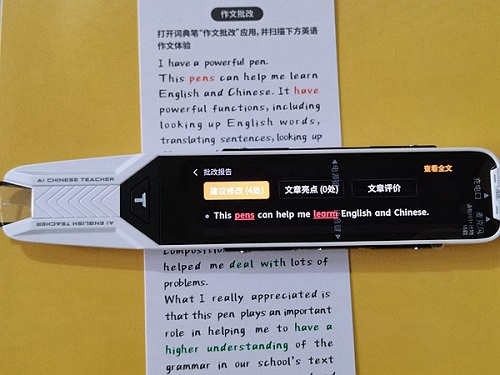 作文批改
打开词典笔"作文批改"应用,并扫描下方英语
作文体验
I have a powerful pen.
This pens can help me learn
English and Chinese. It have
powerful functions, including
looking up English words,
translating sentences, looking up
AI CHINESE TEACHER
T
AI ENGLISH TEACHER
批改报告
查看全文
建议修改 (4处)
文章亮点 (0处)
文章评价
This pens can help me learn English and Chinese.
充电口
麦克风
composition
helped me deal with lots of
problems.
What I really appreciated is
that this pen plays an important
role in helping me to have a
higher understanding of the
grammar in our school's text